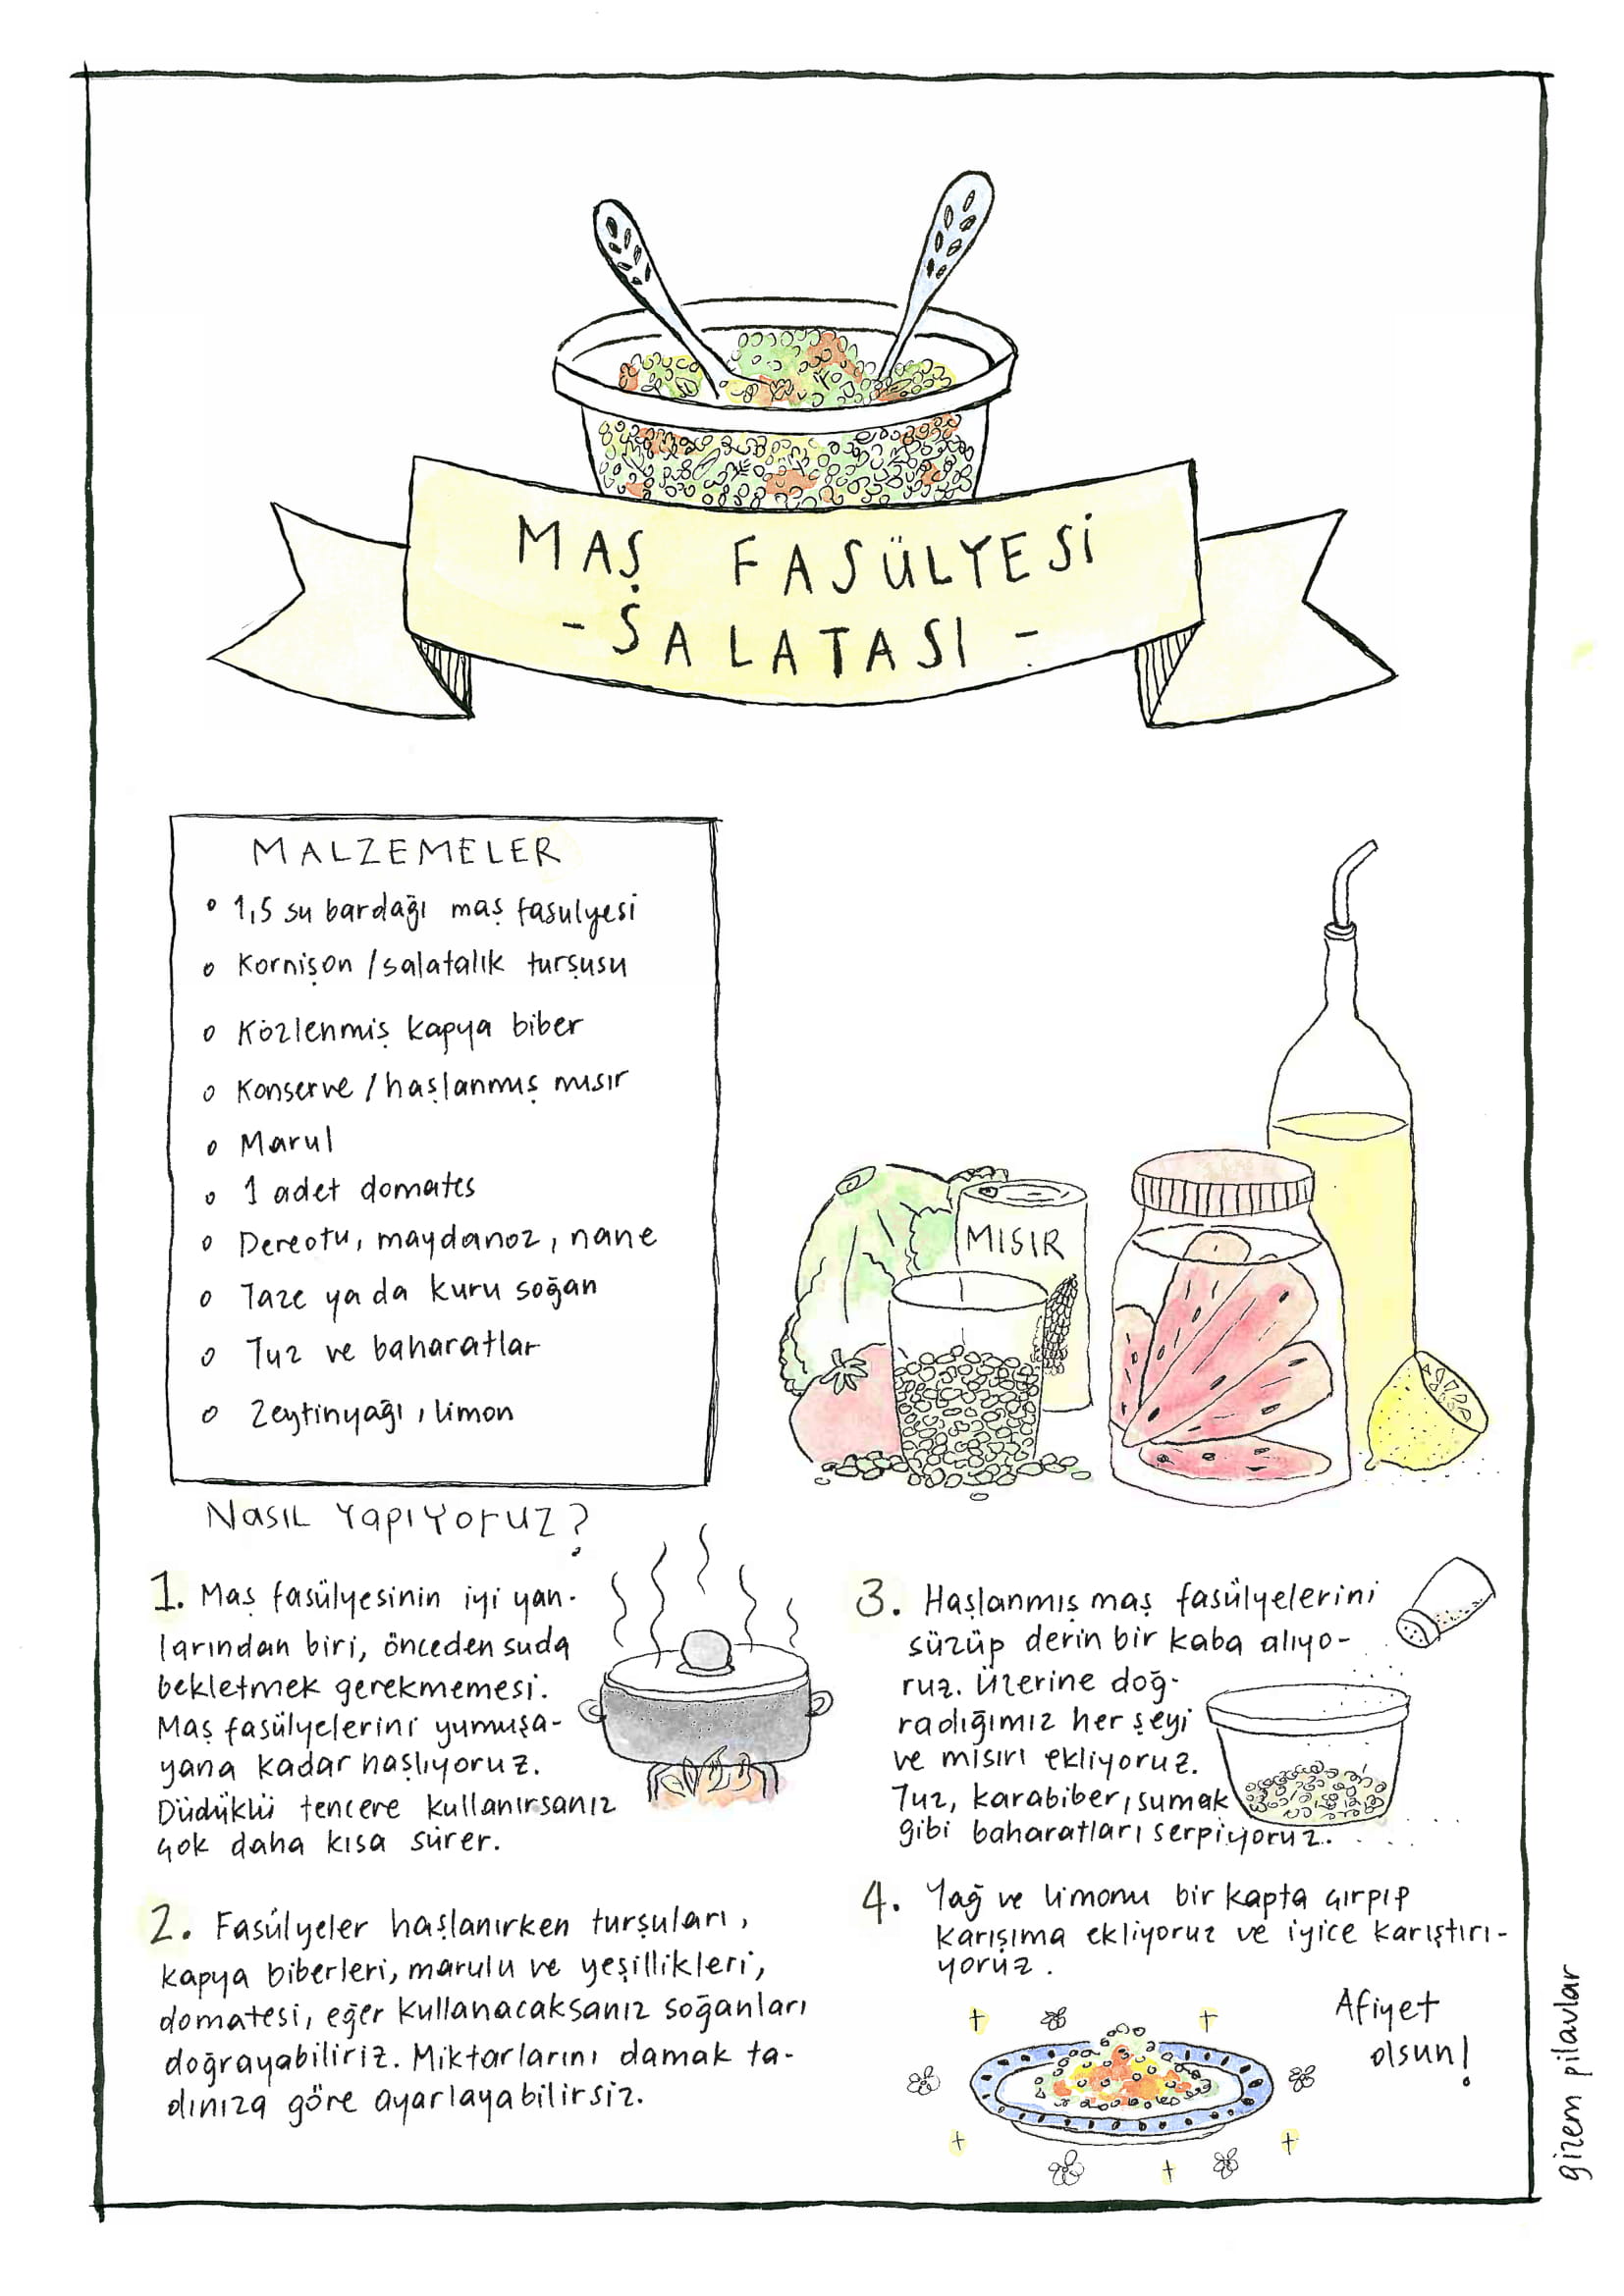 MAŞ FASÜLYESİ
- SALATASI -
MALZEMELER
1,5 su bardağı maş fasulyesi
Kornişon / salatalık turşusu
Közlenmiş kapya biber
Konserve / haşlanmış mısır
Marul
1 adet domates
Dereotu, maydanoz, nane
Taze ya da kuru soğan
Tuz ve baharatlar
Zeytinyağı, limon
MISIR
Nasıl Yapıyoruz?
1. Maş fasülyesinin iyi yan-
larından biri, önceden suda
bekletmek gerekmemesi.
Maş fasülyelerini yumuşa-
yana kadar haşlıyoruz.
Düdüklü tencere kullanırsanız
çok daha kısa sürer.
2. Fasülyeler haşlanırken turşuları,
kapya biberleri, marulu ve yeşillikleri,
domatesi, eğer kullanacaksanız soğanları
doğrayabiliriz. Miktarlarını damak ta-
dınıza göre ayarlayabilirsiz.
3. Haşlanmış maş fasülyelerini
süzüp derin bir kaba alıyo-
ruz. Üzerine doğ-
radığımız her şeyi
ve mısırı ekliyoruz.
Tuz, karabiber, sumak
gibi baharatları serpiyoruz.
4. Yağ ve limonu bir kapta çırpıp
karışıma ekliyoruz ve iyice karıştırı-
yoruz.
Afiyet
olsun!
gizem pilavlar